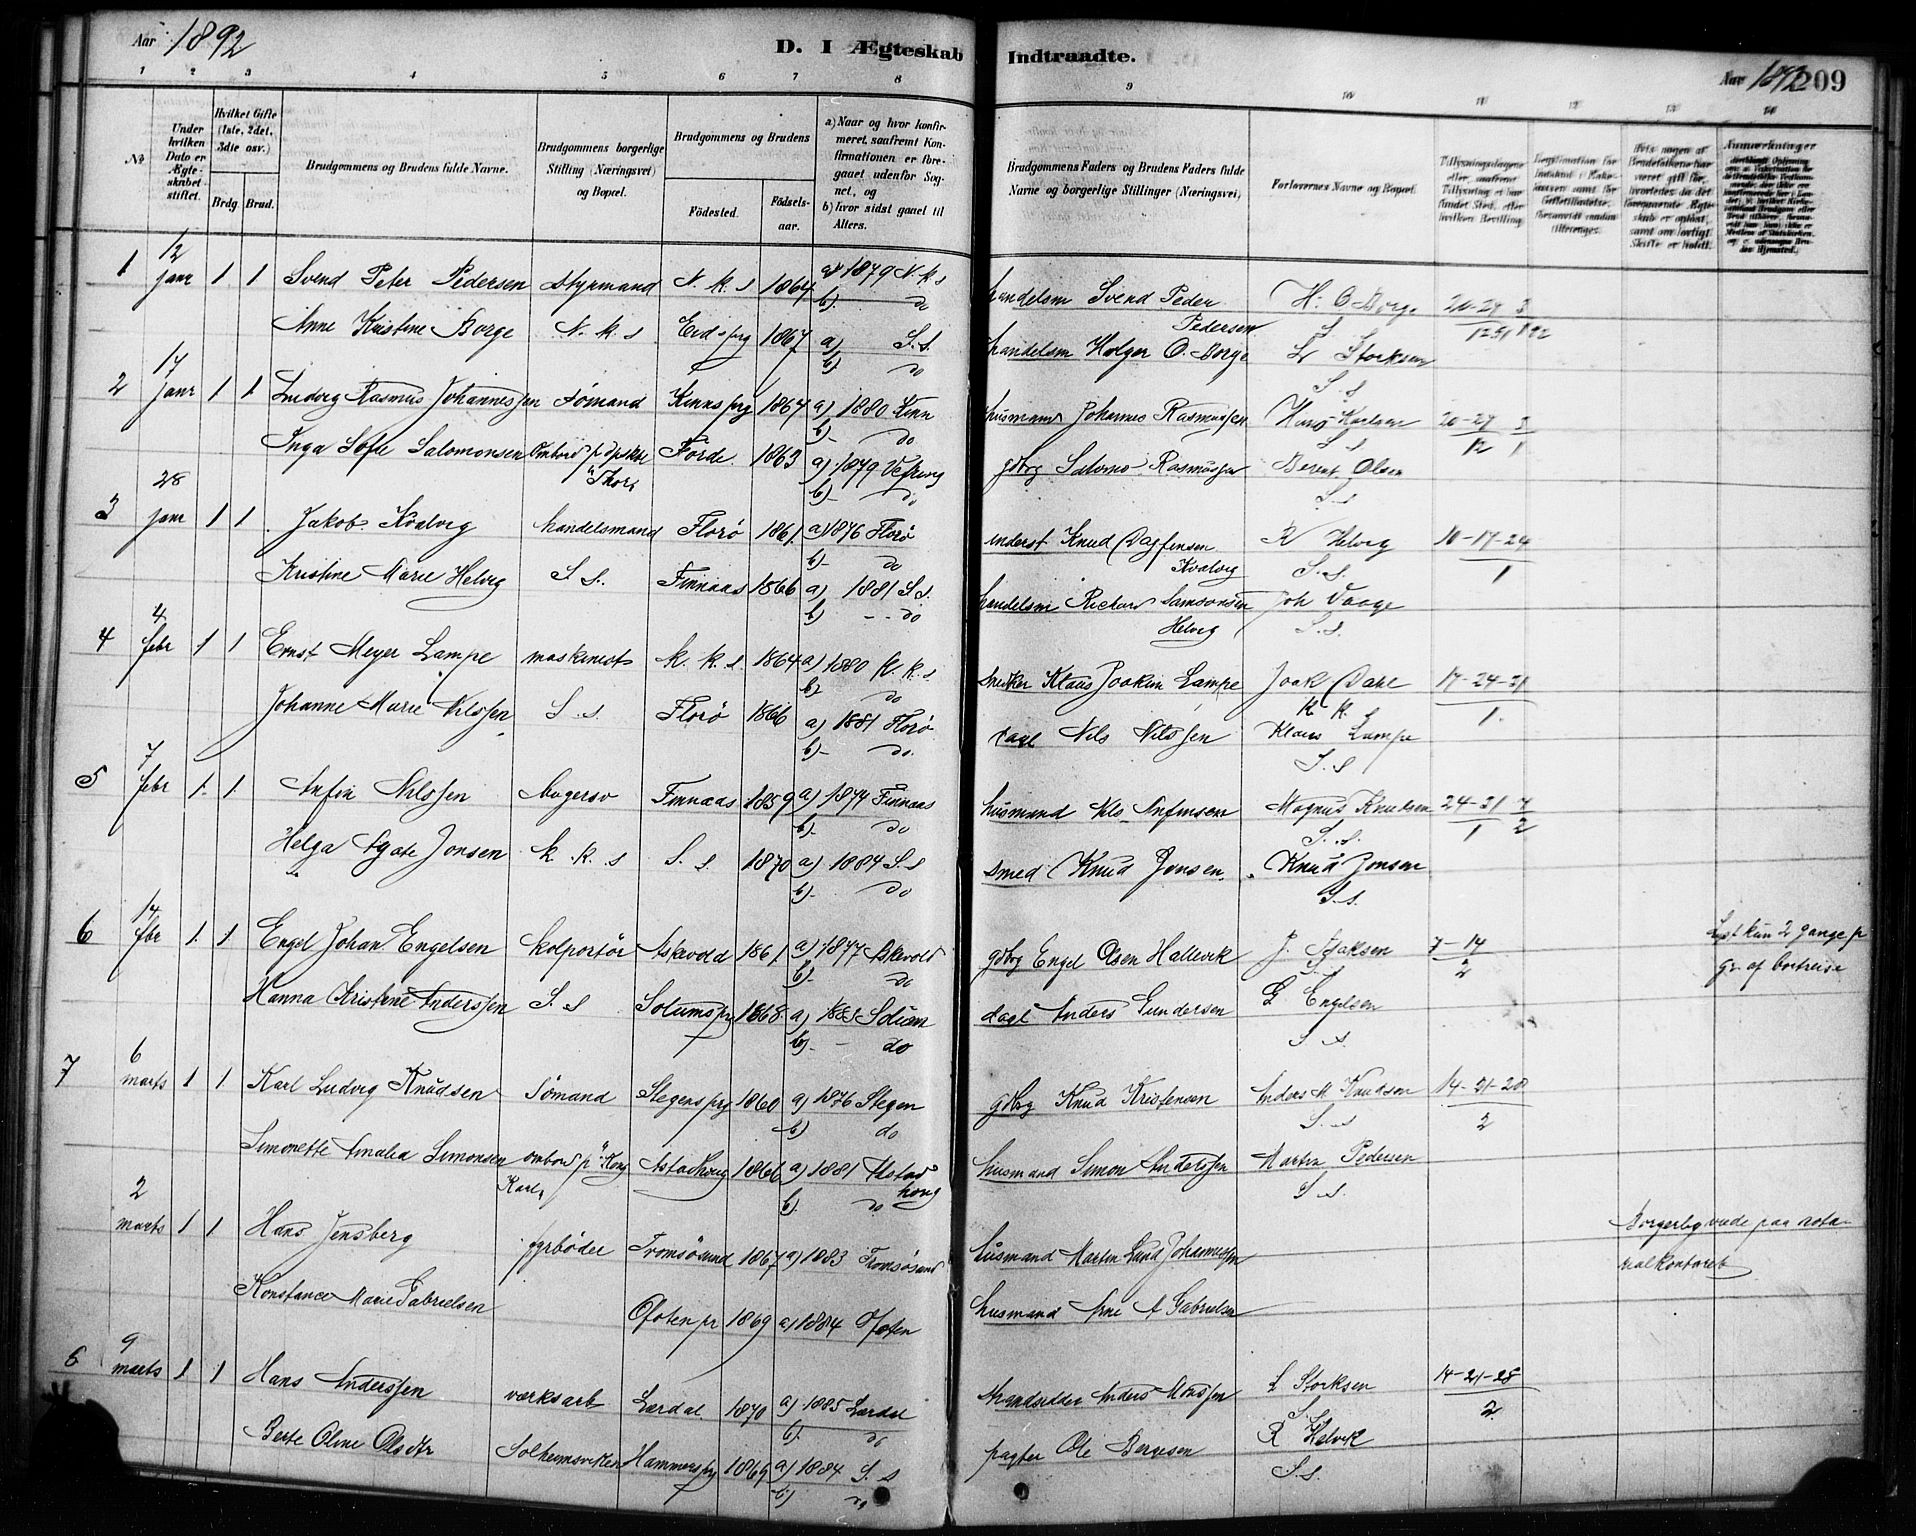 Aar 1892
D. I Ægteskab Indtraadte.
Aar 1892 209
1 2 3 4 5 6 7 8 9 10 11 12 13 14
No.
Under hvilken Dato er Ægteskabet stiftet.
Hvilket Gifte (1ste, 2det, 3die osv.)
Brdg. Brud.
Brudgommens og Brudens fulde Navne.
Brudgommens borgerlige Stilling (Næringsvei) og Bopæl.
Brudgommens og Brudens
Fødested. Fødselsaar.
a) Naar og hvor konfirmeret, saafremt Konfirmationen er foregaaet udenfor Sognet, og
b) hvor sidst gaaet til Alters.
Brudgommens Faders og Brudens Faders fulde Navne og borgerlige Stillinger (Næringsvei).
Forlovernes Navne og Bopæl.
1 12 Janr 1 1 Svend Peter Pedersen Styrmand N. k. s 1864 a) 1879 N. k. s
b) do
handelsm Svend Peder Pedersen H. O. Borge S. s 20-27 3
12 91 1 92
Anne Kristine Borge N. k. s Eidspg 1867 a) S. s.
b) do
handelsm Holger O. Borge L Storksen S. s
2 17 Janr 1 1 Ludvig Rasmus Johannessen Sømand Kinnspg 1867 a) 1880 Kinn
b) do
husmand Johannes Rasmussen Hans S. s 20-27 3
12 1
Inga Sofie Salomonsen Ombord p "Thor" Førde 1863 a) 1879
b)- do
gbrg Salomo Rasmussen Bernt Olsen S. s
3 28 Janr 1 1 Jakob Kvalvig handelsmand Florø 1861 a) 1876 Florø
b)- do
inderst Knud Dagfinsen Kvalvig R Helvig S. s. 10-17-24
1
Kristine Marie Helvig S. s. Finnaas 1866 a) 1881 S. s.
b) - do
handelsm Rickard Samsonsen Helvig Joh Vaage S. s.
4 4 febr 1 1 Ernst Meyer Lampe maskinist k. k. s 1864 a) 1880 K. k. s
b) do
snedker Klaus Joakim Lampe Joak Dahl K. K. s 17-24-31
1
Johanne Marie Nilssen S. s. Florø 1866 a) 1881 Florø
b)- do
dagl Nils Nilssen Klaus Lampe S. s
5 7 febr 1 1 Anfin Nilssen bugersv Finnaas 1859 a) 1874 Finnaas
b) do
husmand Nils Anfinsen Magnus Knudsen S. s. 24-31 7
1 2
Helga Agate Jonsen k. k. s S. s 1870 a) 1884 S. s
b)- do
smed Knud Jonsen Knud Jonsen S. s.
6 14 fbr 1 1 Engel Johan Engelsen kolportør Askevold 1861 a) 1877 Askevold
b) do
gbrg Engel Olsen Hallevik J. Isaksen S. 7-14
2
Lyst kun 2 gange p
gr. af bortreise
Hanna Kristine Anderssen S. s Solumspg 1868 a) 1883 Solum
b)- - do
dagl Anders Gundersen G Engelsen S. s.
7 6 marts 1 1 Karl Ludvig Knudsen Sømand Stegenspg 1860 a) 1876 Stegen
b) do
gbrg Knud Kristensen Anders M Knudsen S. s. 14-21-28
2
Simonette Amalia Simonsen ombord p "Kong Karl" Alstadhoug 1866 a) 1881 Alstadhoug
b) do
husmand Simon Anderssen Martin Pedersen S. s.
2 marts 1 1 Hans Jensberg fyrbøder Tromsøsund 1867 a) 1883 Tromsøsund
husmand Martin Lund Johannessen
Borgerlig viede paa nota-
rialkontoret
Konstance Marie Gabrielsen Ofoten pr 1869 a) 1884 Ofoten
husmand Arne A Gabrielsen
8 9 marts 1 1 Hans Anderssen værksarb Lærdal 1870 a) 1885 Lærdal
b) do
strandsidder Anders Monssen L Storksen S. s. 14-21-28
2
Berte Oline Olsdtr Solheimsviken Hammerspg 1869 a) 1884 S. s
b) do
pagter Ole Bergesen R Helvik S. s.